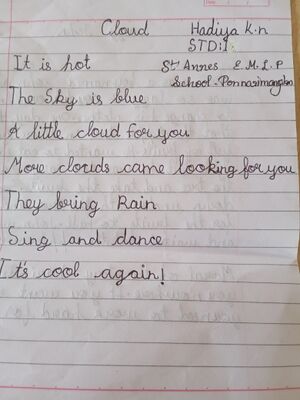 Cloud
Hadiya K.n
STD:1
It is hot
St Annes E.M.L.P
School.
The Sky is blue
A little cloud for you
More clouds came looking for you
They bring Rain
Sing and dance
It's cool again!